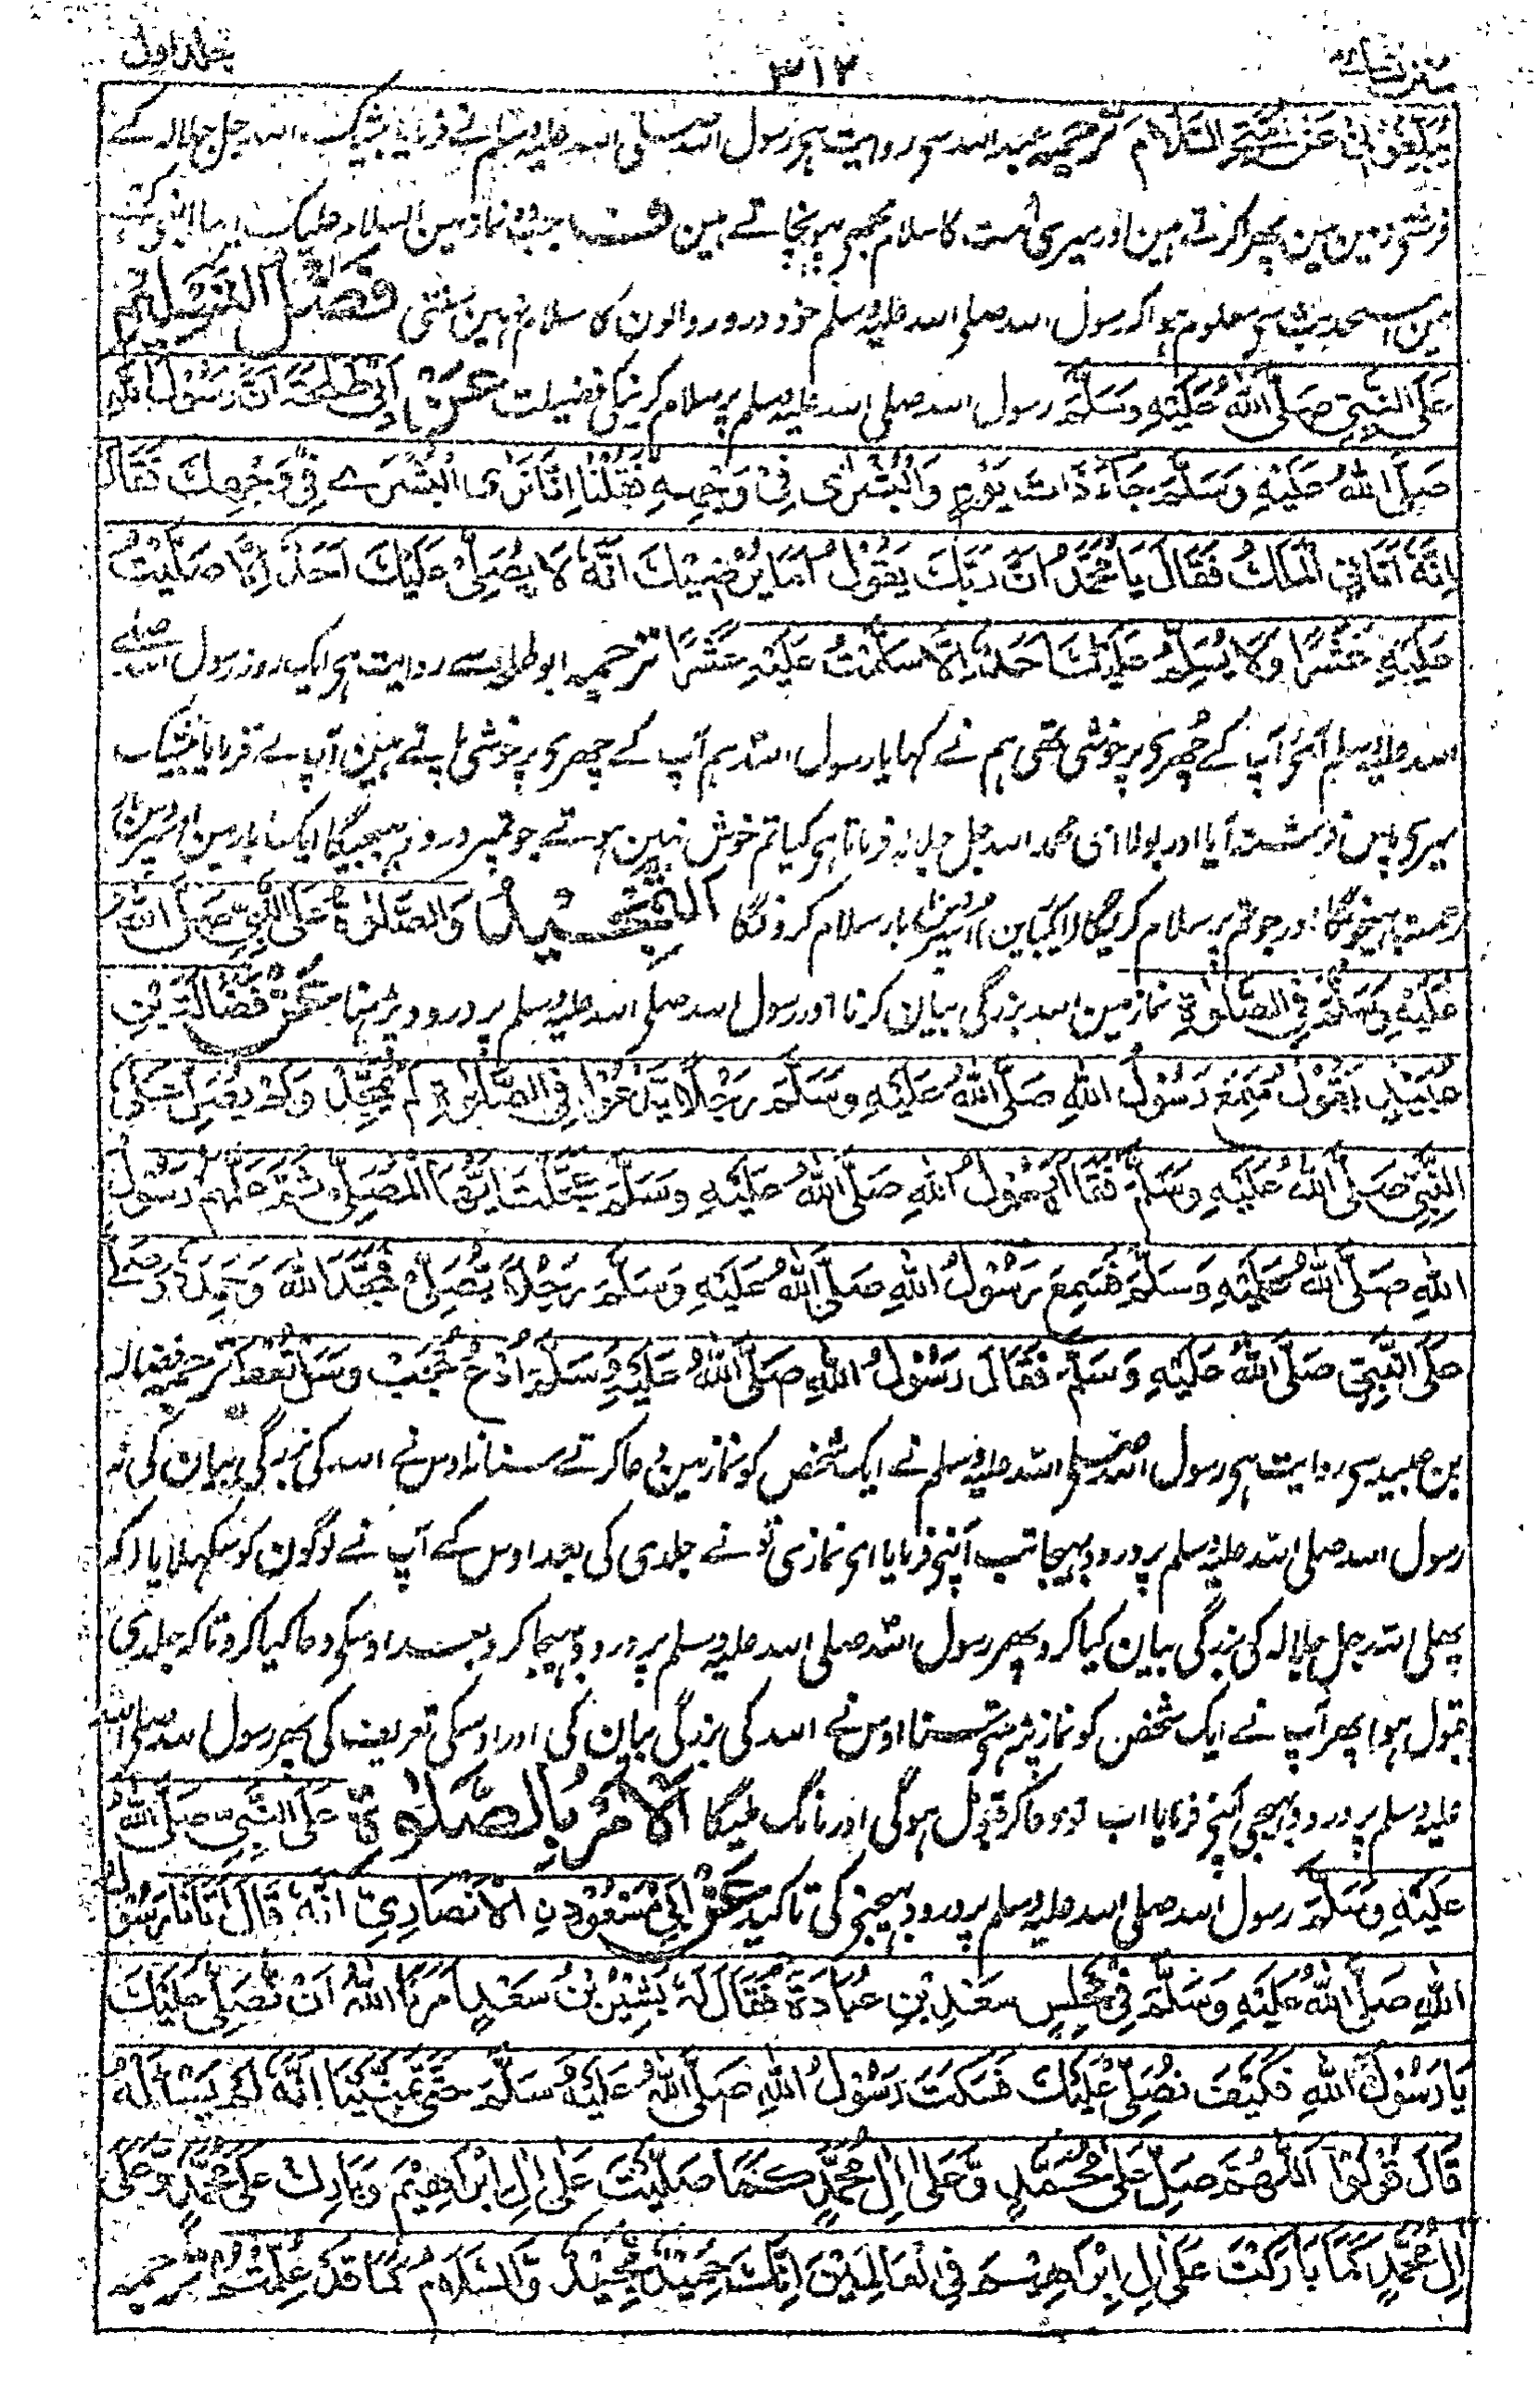 سنن نسائی ۳۱۲ جلد اول
يُبَلِّغُوْنِىْ عَنْ اُمَّتِىَ السَّلَامَ ترجمہ عبد اللہ سے روایت ہی رسول اللہ صلی اللہ علیہ وسلم نے فرمایا بیشک اللہ جل جلالہ کے
فرشتی زمین مین پھرا کرتے ہین اور میری امت کا سلام مجھی پہونچاتے ہین ف جب نماز مین السلام علیک
مین اس حدیث سی معلوم ہوا کہ رسول اللہ صلی اللہ علیہ وسلم خود دور والون کا سلام نہین سنتی فَضْلُ التَّسْلِيْمِ
عَلَى النَّبِيِّ صَلَّى اللهُ عَلَيْهِ وَسَلَّمَ رسول اللہ صلی اللہ علیہ وسلم پر سلام کرنیکی فضیلت عَنْ اَبِىْ طَلْحَةَ اَنَّ رَسُوْلَ اللهِ
صَلَّى اللهُ عَلَيْهِ وَسَلَّمَ جَاءَ ذَاتَ يَوْمٍ وَالْبُشْرٰى فِىْ وَجْهِهٖ فَقُلْنَا اِنَّا نَرَى الْبُشْرٰے فِىْ وَجْهِكَ فَقَالَ
اِنَّهٗ اَتَانِى الْمَلَكُ فَقَالَ يَا مُحَمَّدُ اِنَّ رَبَّكَ يَقُوْلُ اَمَا يُرْضِيْكَ اَنَّهٗ لَا يُصَلِّىْ عَلَيْكَ اَحَدٌ اِلَّا صَلَّيْتُ
عَلَيْهِ عَشْرًا وَلَا يُسَلِّمُ عَلَيْكَ اَحَدٌ اِلَّا سَلَّمْتُ عَلَيْهِ عَشْرًا ترجمہ ابو طلحہ سے روایت ہی ایک روز رسول اللہ صلے
اللہ علیہ وسلم آئی آپ کے چہری پر خوشی تھی ہم نے کہا یا رسول اللہ ہم آپ کے چہری پر خوشی پاتے ہین آپ نے فرمایا بیشک
میری پاس فرشتہ آیا اور بولا ای محمد اللہ جل جلالہ فرماتا ہی کیا تم خوش نہین ہوتے جو تمپر درود بہیجیگا ایک بار مین اوسپر دس بار
رحمت بہیجونگا اور جو تم پر سلام کریگا (ایکبار) مین اوسپر دس بار سلام کرونگا التَّمْجِيْدُ وَالصَّلٰوةُ عَلَى النَّبِيِّ صَلَّى اللهُ
عَلَيْهِ وَسَلَّمَ فِى الصَّلٰوةِ نماز مین اللہ بزرگی بیان کرنا اور رسول اللہ صلی اللہ علیہ وسلم پر درود پڑہنا عَنْ فَضَالَةَ بْنِ
عُبَيْدٍ يَقُوْلُ سَمِعَ رَسُوْلُ اللهِ صَلَّى اللهُ عَلَيْهِ وَسَلَّمَ رَجُلًا يَدْعُوْا فِى الصَّلٰوةِ لَمْ يُمَجِّدِ اللهَ وَلَمْ يُصَلِّ عَلَى
النَّبِيِّ صَلَّى اللهُ عَلَيْهِ وَسَلَّمَ فَقَالَ رَسُوْلُ اللهِ صَلَّى اللهُ عَلَيْهِ وَسَلَّمَ عَجِلْتَ اَيُّهَا الْمُصَلِّىْ ثُمَّ عَلَّمَهُمْ رَسُوْلُ
اللهِ صَلَّى اللهُ عَلَيْهِ وَسَلَّمَ فَسَمِعَ رَسُوْلُ اللهِ صَلَّى اللهُ عَلَيْهِ وَسَلَّمَ رَجُلًا يُّصَلِّىْ فَمَجَّدَ اللهَ وَحَمِدَهٗ وَصَلّٰى
عَلَى النَّبِيِّ صَلَّى اللهُ عَلَيْهِ وَسَلَّمَ فَقَالَ رَسُوْلُ اللهِ صَلَّى اللهُ عَلَيْهِ وَسَلَّمَ اُدْعُ تُجَبْ وَسَلْ تُعْطَ ترجمہ فضالہ
بن عبید سی روایت ہی رسول اللہ صلی اللہ علیہ وسلم نے ایک شخص کو نماز مین دعا کرتے سنا نہ اوس نے اللہ کی بزرگی بیان کی نہ
رسول اللہ صلی اللہ علیہ وسلم پر درود بہیجا تب آپنی فرمایا ای نمازی تو نے جلدی کی بعد اوس کے آپ نے لوگون کو سکہلایا (کہ
پہلی اللہ جل جلالہ کی بزرگی بیان کیا کرو پھر رسول اللہ صلی اللہ علیہ وسلم پر درود بہیجا کرو بعد اوسکی دعا کیا کرو تاکہ جلدی
قبول ہو) پھر آپ نے ایک شخص کو نماز پڑہتی سنا اوس نے اللہ کی بزرگی بیان کی اور اوسکی تعریف کی پھر رسول اللہ صلی اللہ
علیہ وسلم پر درود بہیجی آپنی فرمایا اب تو دعا کر قبول ہوگی اور مانگ ملیگا اَلْاَمْرُ بِالصَّلٰوةِ عَلَى النَّبِيِّ صَلَّى اللهُ
عَلَيْهِ وَسَلَّمَ رسول اللہ صلی اللہ علیہ وسلم پر درود بہیجنی کی تاکید عَنْ اَبِىْ مَسْعُوْدِ نِ الْاَنْصَارِيِّ اَنَّهٗ قَالَ اَتَانَا رَسُوْلُ
اللهِ صَلَّى اللهُ عَلَيْهِ وَسَلَّمَ فِىْ مَجْلِسِ سَعْدِ بْنِ عُبَادَةَ فَقَالَ لَهٗ بَشِيْرُ بْنُ سَعْدٍ اَمَرَنَا اللهُ اَنْ نُّصَلِّىَ عَلَيْكَ
يَا رَسُوْلَ اللهِ فَكَيْفَ نُصَلِّىْ عَلَيْكَ فَسَكَتَ رَسُوْلُ اللهِ صَلَّى اللهُ عَلَيْهِ وَسَلَّمَ حَتّٰى تَمَنَّيْنَا اَنَّهٗ لَمْ يَسْاَلْهُ
قَالَ قُوْلُوْا اَللّٰهُمَّ صَلِّ عَلٰى مُحَمَّدٍ وَّعَلٰى اٰلِ مُحَمَّدٍ كَمَا صَلَّيْتَ عَلٰى اٰلِ اِبْرَاهِيْمَ وَبَارِكْ عَلٰى مُحَمَّدٍ وَّعَلٰى
اٰلِ مُحَمَّدٍ كَمَا بَارَكْتَ عَلٰى اٰلِ اِبْرَاهِيْمَ فِى الْعَالَمِيْنَ اِنَّكَ حَمِيْدٌ مَّجِيْدٌ وَّالسَّلَامُ كَمَا قَدْ عَلِمْتُمْ ترجمہ